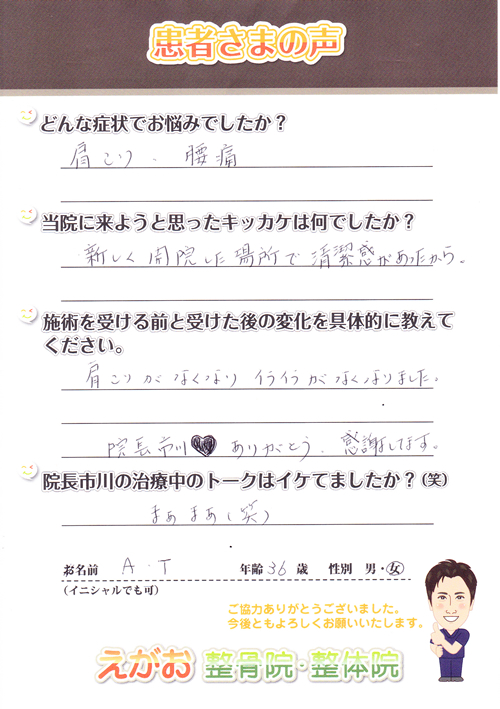 患者さまの声
どんな症状でお悩みでしたか？
肩こり、腰痛
当院に来ようと思ったキッカケは何でしたか？
新しく開院した場所で清潔感があったから。
施術を受ける前と受けた後の変化を具体的に教えて
ください。
肩こりがなくなり イライラがなくなりました。
院長市川♥ありがとう、感謝してます。
院長市川の治療中のトークはイケてましたか？（笑）
まぁまぁ（笑）
お名前 A.T 年齢 36 歳 性別 男・女
（イニシャルでも可）
ご協力ありがとうございました。
今後ともよろしくお願いいたします。
えがお 整骨院・整体院